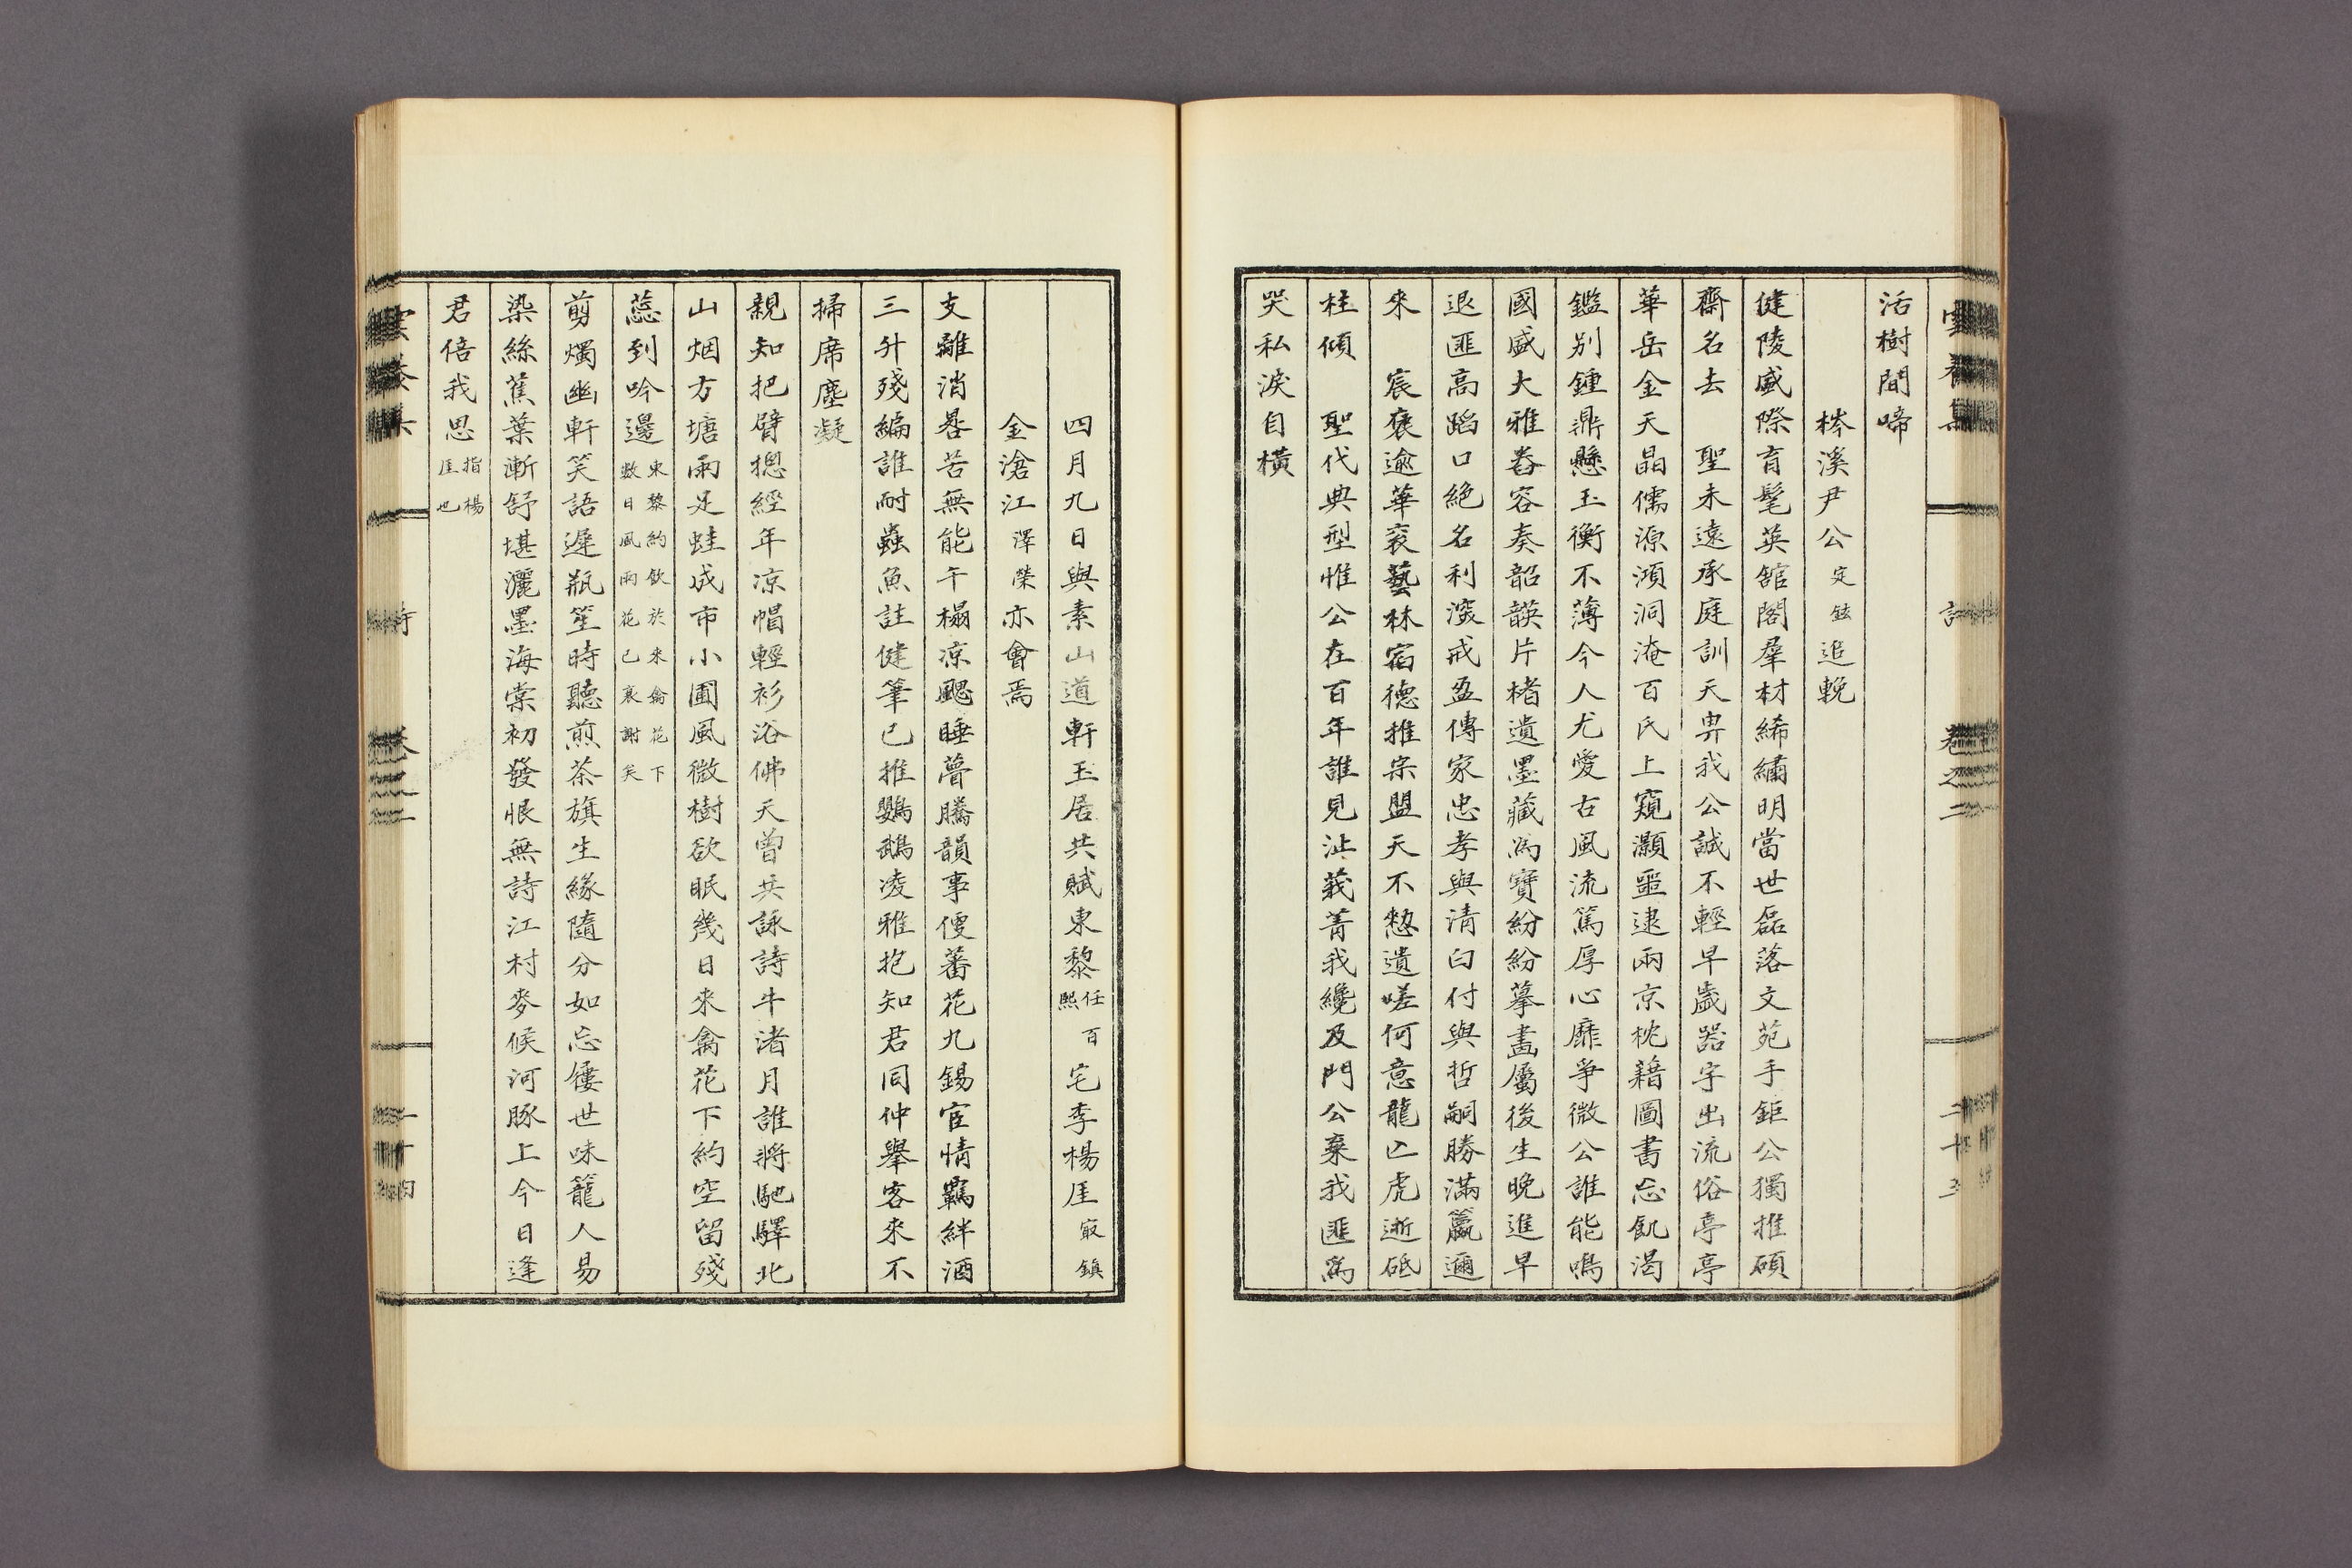 活樹間啼
梣溪尹公定鉉追輓
健陵盛際育髦英舘閣羣材絺繡明當世磊落文苑手鉅公獨推碩
齋名去　聖未遠承庭訓天畀我公誠不輕早歲器宇出流俗亭亭
華岳金天晶儒源澒洞淹百氏上窺灝噩逮兩京枕藉圖書忘飢渴
鑑別鍾鼎懸玉衡不薄今人尤愛古風流篤厚心靡爭微公誰能鳴
國盛大雅舂容奏韶韺片楮遺墨藏為寶紛紛摹畫屬後生晚進早
退匪高蹈口絕名利深戒盈傳家忠孝與清白付與哲嗣勝滿籯邇
來　宸褒逾華袞藝林宿德推宗盟天不憗遺嗟何意龍亡虎逝砥
柱傾　聖代典型惟公在百年誰見沚莪菁我纔及門公棄我匪為
哭私淚自橫
四月九日與素山道軒玉居共賦東黎任百熙宅李楊厓㝡鎮
金滄江澤榮亦會焉
支離消晷苦無能午榻凉颸睡瞢騰韻事優蕃花九錫宦情羈絆酒
三升殘編誰耐蟲魚註健筆已推鸚鵡凌雅抱知君同仲舉客來不
掃席塵凝
親知把臂揔經年凉帽輕衫浴佛天曾共詠詩牛渚月誰將馳驛北
山烟方塘雨足蛙成市小圃風微樹欲眠幾日來禽花下約空留殘
蕊到吟邊東黎約飲於來禽花下數日風雨花已衰謝矣
剪燭幽軒笑語遲瓶笙時聽煎茶旗生緣隨分如忘慺世味籠人易
染絲蕉葉漸舒堪灑墨海棠初發恨無詩江村麥候河豚上今日逢
君倍我思指楊厓也
詩